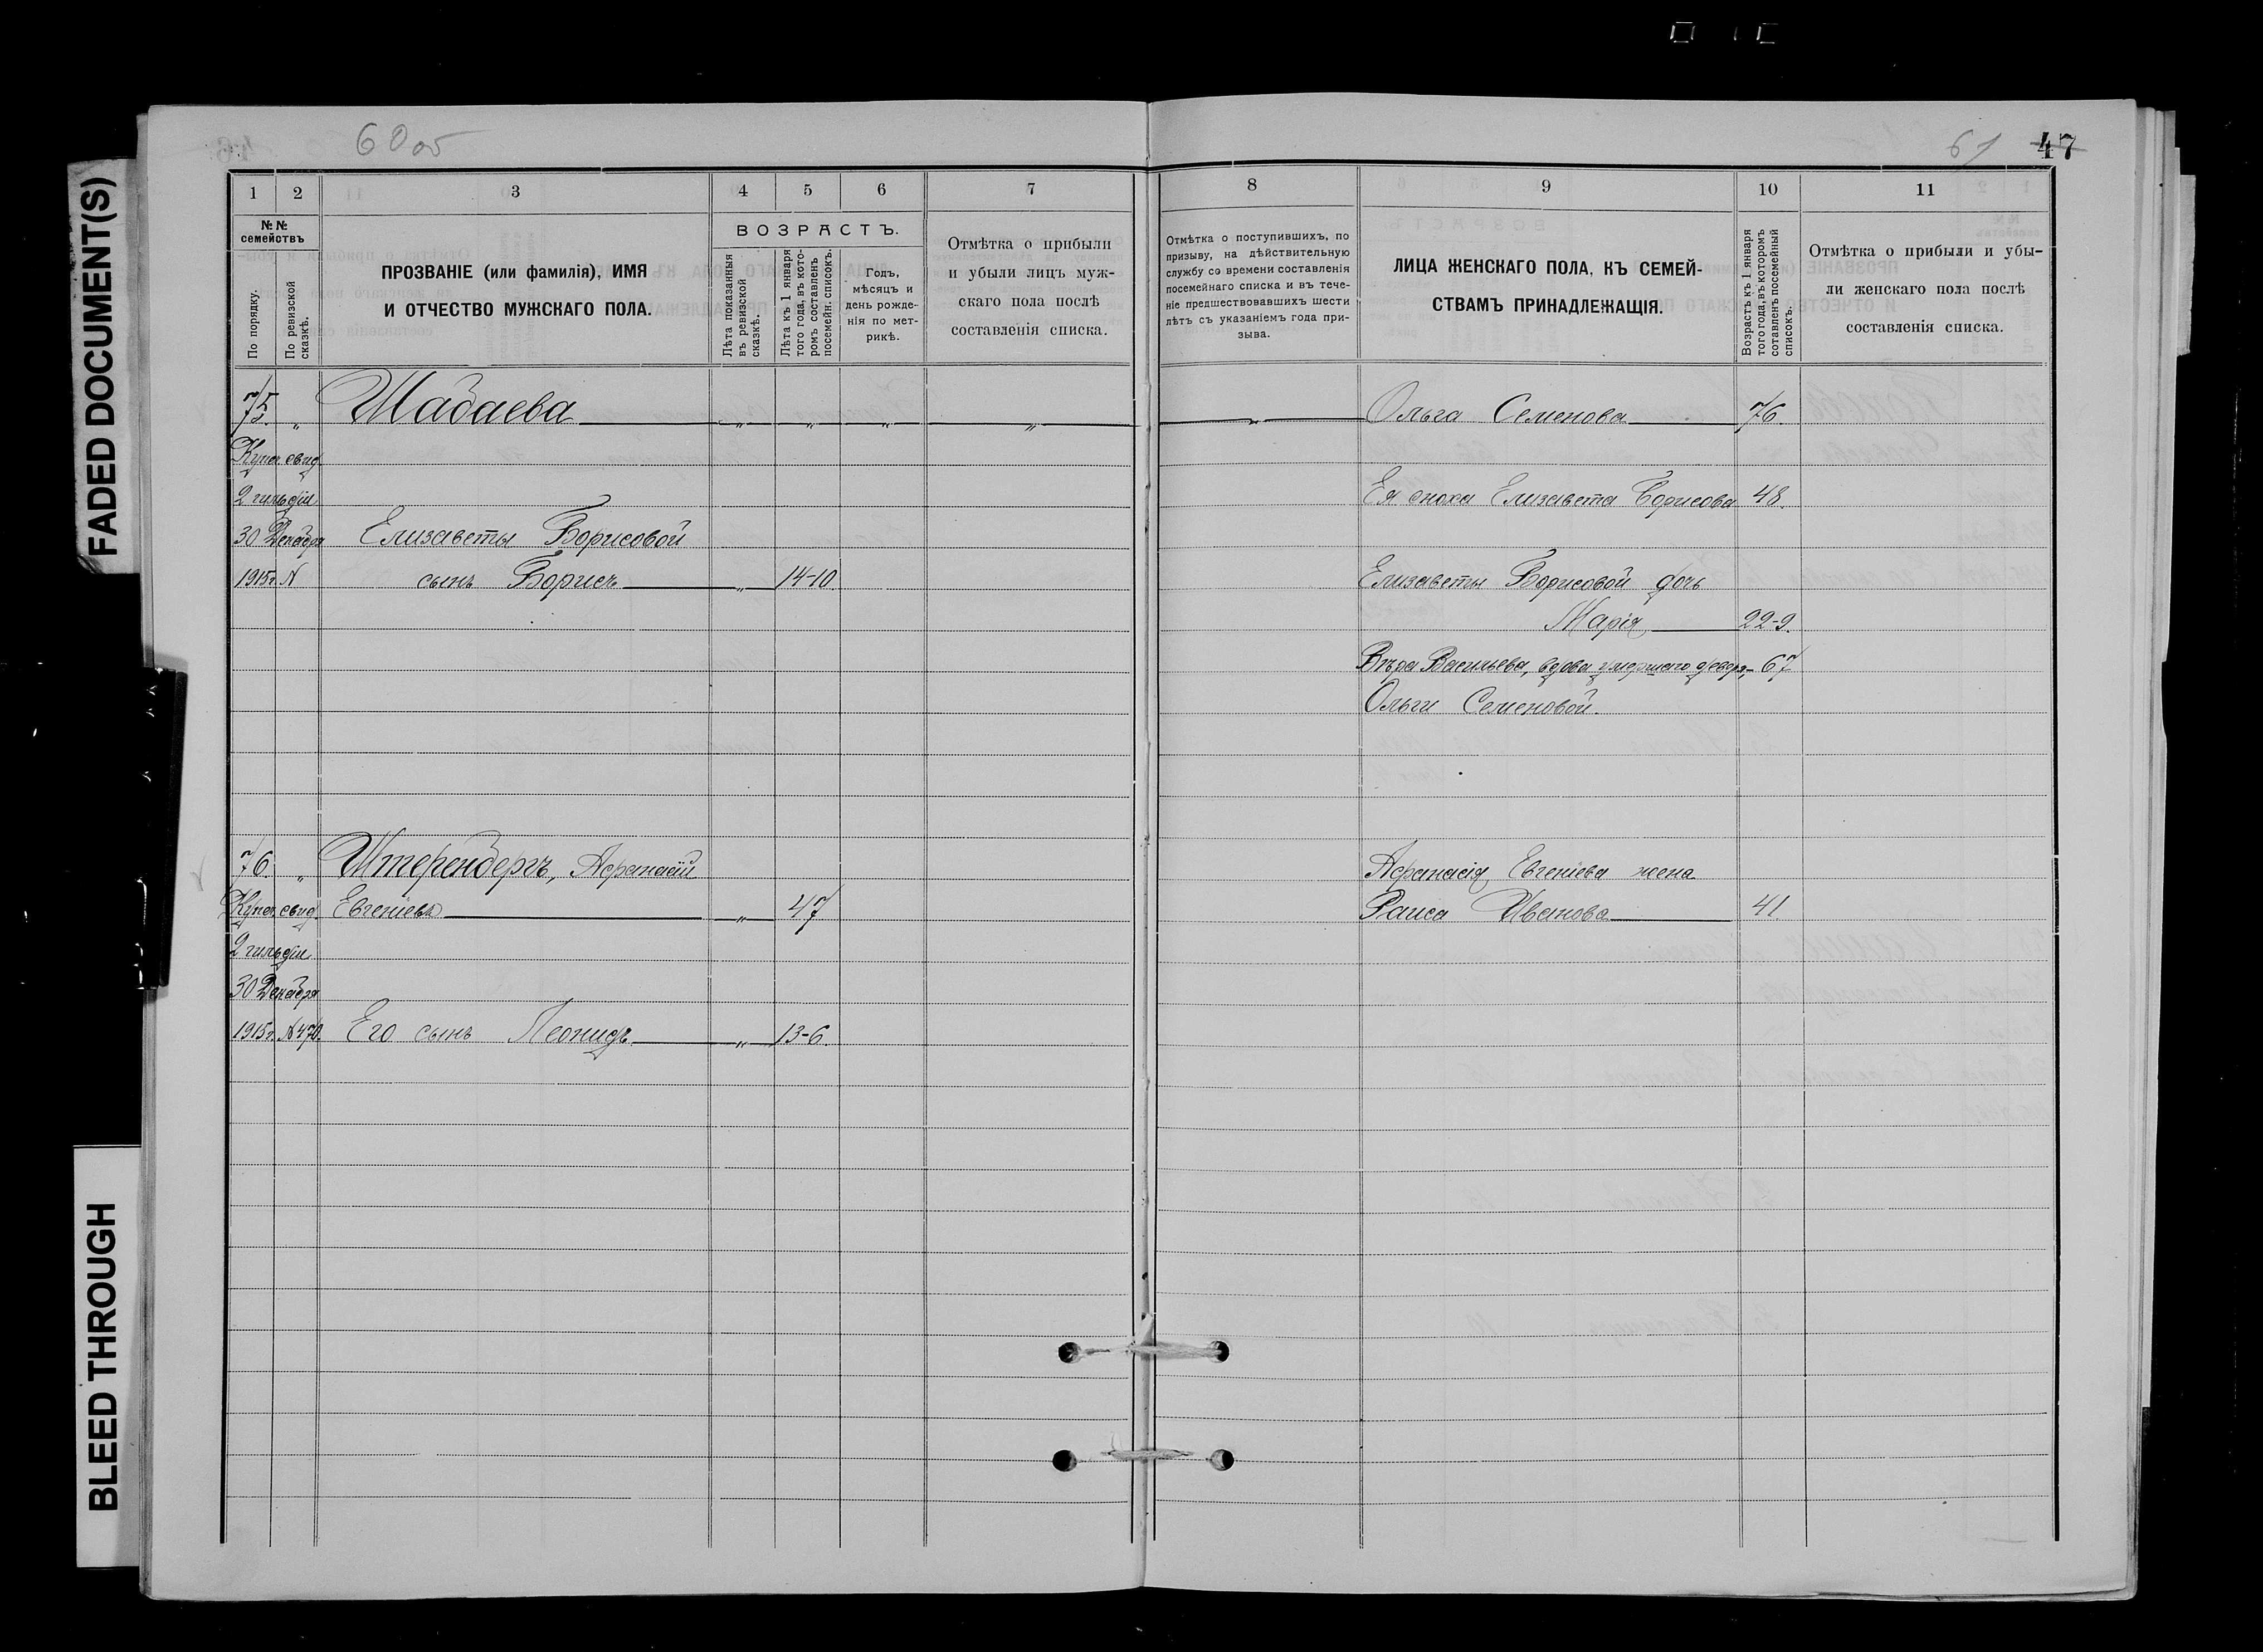 FADED DOCUMENT(S)
BLEED THROUGH
60 об
61 47
1 2 3 4 5 6 7
№№ семействъ
По порядку.
По ревизской сказкѣ.
ПРОЗВАНІЕ (или фамилія), ИМЯ
И ОТЧЕСТВО МУЖСКАГО ПОЛА.
ВОЗРАСТЪ.
Лѣта показанныя въ ревизской сказкѣ.
Лѣта къ 1 января того года, въ кото-ромъ составленъ посемейн. списокъ.
Годъ, мѣсяцъ и день рожде-нія по мет-рикѣ.
Отмѣтка о прибыли
и убыли лицъ муж-
скаго пола послѣ
составленія списка.
8 9 10 11
Отмѣтка о поступившихъ, по
призыву, на дѣйствительную
службу со времени составленія
посемейнаго списка и въ тече-
ніе предшествовавшихъ шести
лѣтъ съ указаніемъ года при-
зыва.
ЛИЦА ЖЕНСКАГО ПОЛА, КЪ СЕМЕЙ-
СТВАМЪ ПРИНАДЛЕЖАЩІЯ.
Возрастъ къ 1 января
того года, въ которомъ
сотавленъ посемейный
списокъ.
Отмѣтка о прибыли и убы-
ли женскаго пола послѣ
составленія списка.
75. „ Шабаева „ „ „ „ „ Ольга Семенова 76.
Купеч. свид.
2 гильдіи Ея сноха Елизавета Борисова 48.
30 Декабря Елизаветы Борисовой
1915г. N сынъ Борисъ „ 14-10. Елизаветы Борисовой дочь
Марія 22-9.
Вѣра Васильева, вдова умершаго деверя 67
Ольги Семеновой.
76. „ Штеренбергъ, Афанасій Афанасія Евгеніева жена
Купеч. свид. Евгеніевъ „ 47 Раиса Иванова 41.
2 гильдіи
30 Декабря
1915г. N470. Его сынъ Леонидъ „ 13-6.